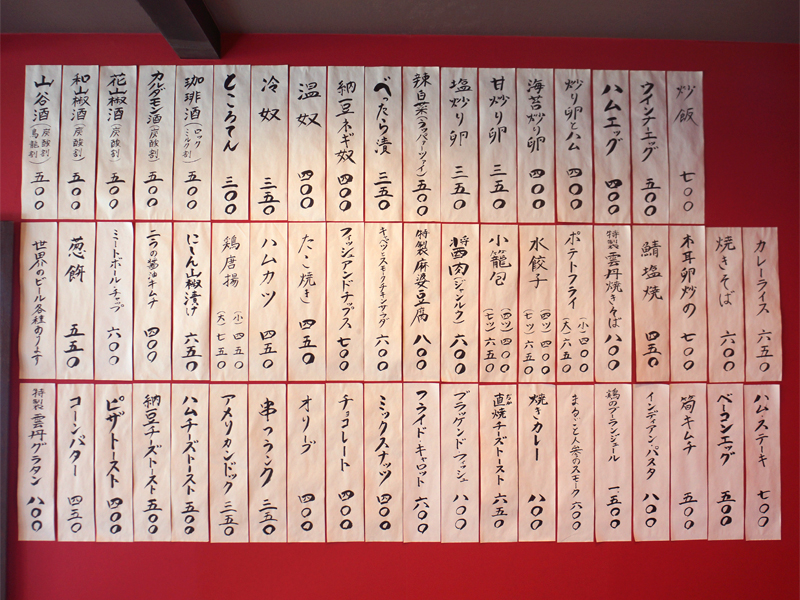 炒飯 七〇〇
ウインナーエッグ 五〇〇
ハムエッグ 四〇〇
炒り卵とハム 四〇〇
海苔炒り卵 四〇〇
甘炒り卵 三五〇
塩炒り卵 三五〇
辣白菜(ラッパーツァイ) 五〇〇
べったら漬 三五〇
納豆ネギ奴 四〇〇
温奴 四〇〇
冷奴 三五〇
ところてん 三〇〇
珈琲酒(ロック ミルク割) 五〇〇
カルダモン酒(炭酸割) 五〇〇
花山椒酒(炭酸割) 五〇〇
和山椒酒(炭酸割) 五〇〇
山谷酒(炭酸割 烏龍割) 五〇〇
カレーライス 六五〇
焼きそば 六〇〇
木耳卵炒め 七〇〇
鯖塩焼 四五〇
特製雲丹焼きそば 八〇〇
ポテトフライ (小)四〇〇 (大)六五〇
水餃子 (四ツ)四〇〇 (七ツ)六五〇
小籠包 (四ツ)四〇〇 (七ツ)六五〇
醤肉(ジャンルウ) 六〇〇
特製麻婆豆腐 八〇〇
キャベツとスモークチキンサラダ 六〇〇
フィッシュアンドチップス 七〇〇
たこ焼き 四五〇
ハムカツ 四五〇
鶏唐揚 (小)四五〇 (大)七五〇
にしん山椒漬け 六五〇
二つの醤油キムチ 四〇〇
ミートボールチャップ 六〇〇
葱餅 五五〇
世界のビール各種あります
ハムステーキ 七〇〇
ベーコンエッグ 五〇〇
筍キムチ 五〇〇
インディアンパスタ 八〇〇
鶏のブーランジェール 一、五〇〇
まるごと人参のスモーク 六〇〇
焼きカレー 八〇〇
直焼チーズトースト 六五〇
ブラッケンドフィッシュ 八〇〇
フライドキャロット 六〇〇
ミックスナッツ 四〇〇
チョコレート 四〇〇
オリーブ 四〇〇
串フランク 三五〇
アメリカンドック 三五〇
ハムチーズトースト 五〇〇
納豆チーズトースト 五〇〇
ピザトースト 四〇〇
コーンバター 四五〇
特製雲丹グラタン 八〇〇